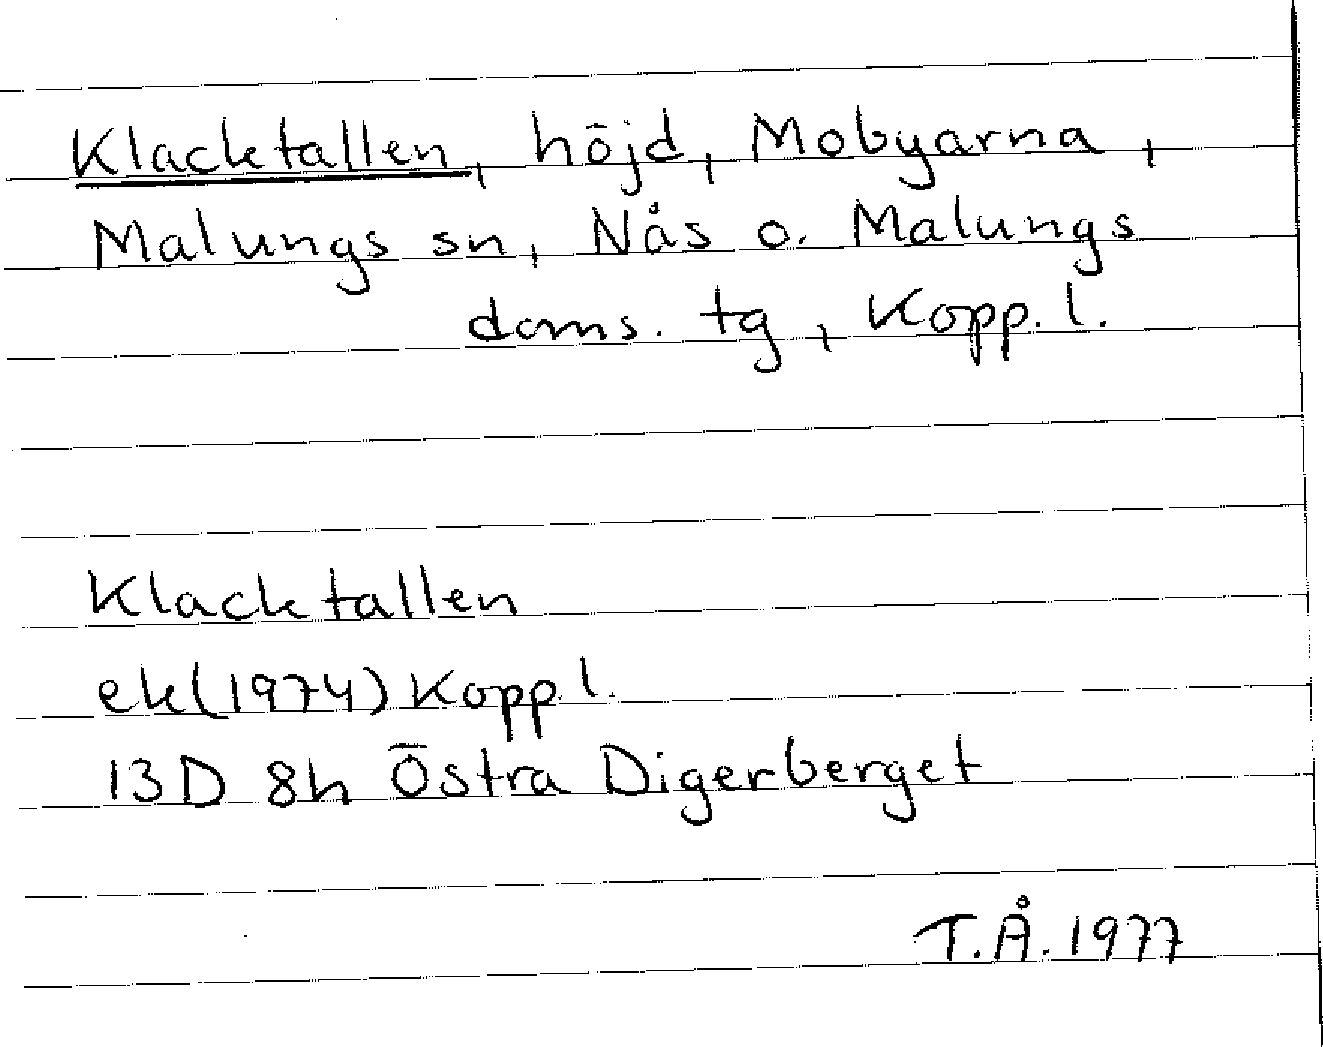 Klacktallen, höjd, Mobyarna,
Malungs sn, Nås o. Malungs
doms. tg, Kopp. l.
Klacktallen
ek(1974) Kopp l.
13D 8h Östra Digerberget
T.Å. 1977